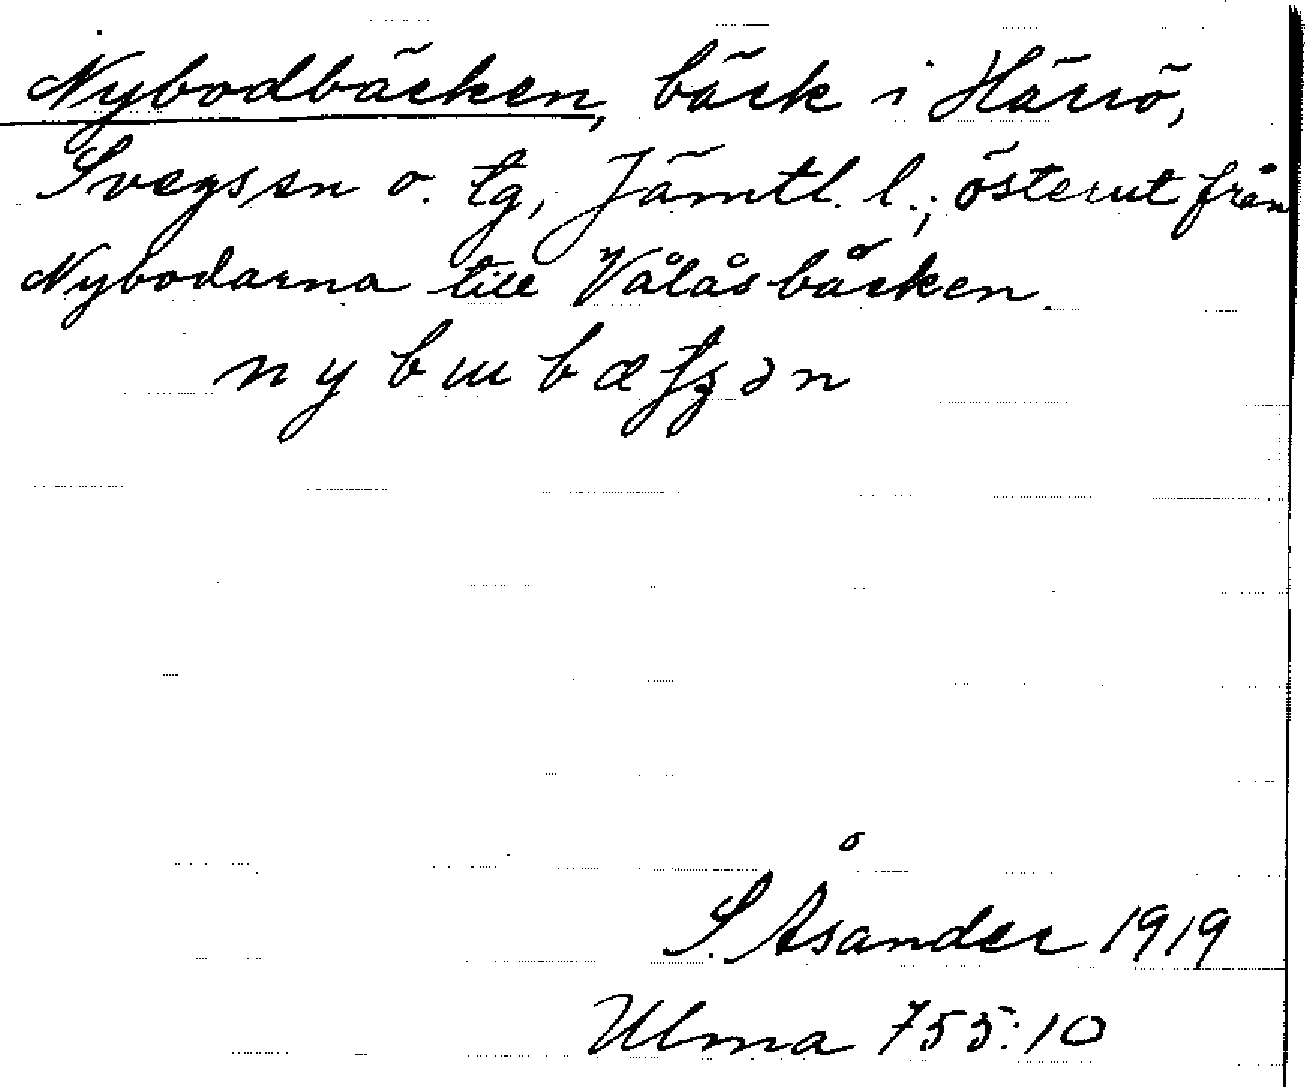 Nybodbäcken, bäck i Härrö,
Svegs sn o. tg, Jämtl. l.; österut från
Nybodarna till Vålåsbäcken.
S. Åsander 1919
Ulma 755:10